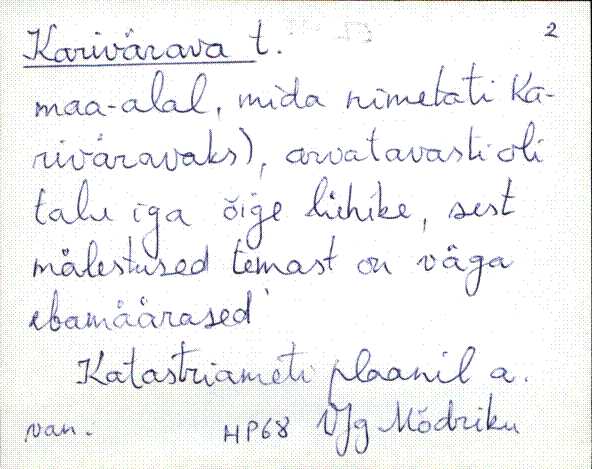 Karivärava t. 2
maa-alal, mida nimetati Ka-
riväravaks), arvatavasti oli
talu iga õige lühike, sest
mälestused temast on väga
ebamäärased'
Katastriameti plaanil a.
van. HP68 VJg Mõdriku